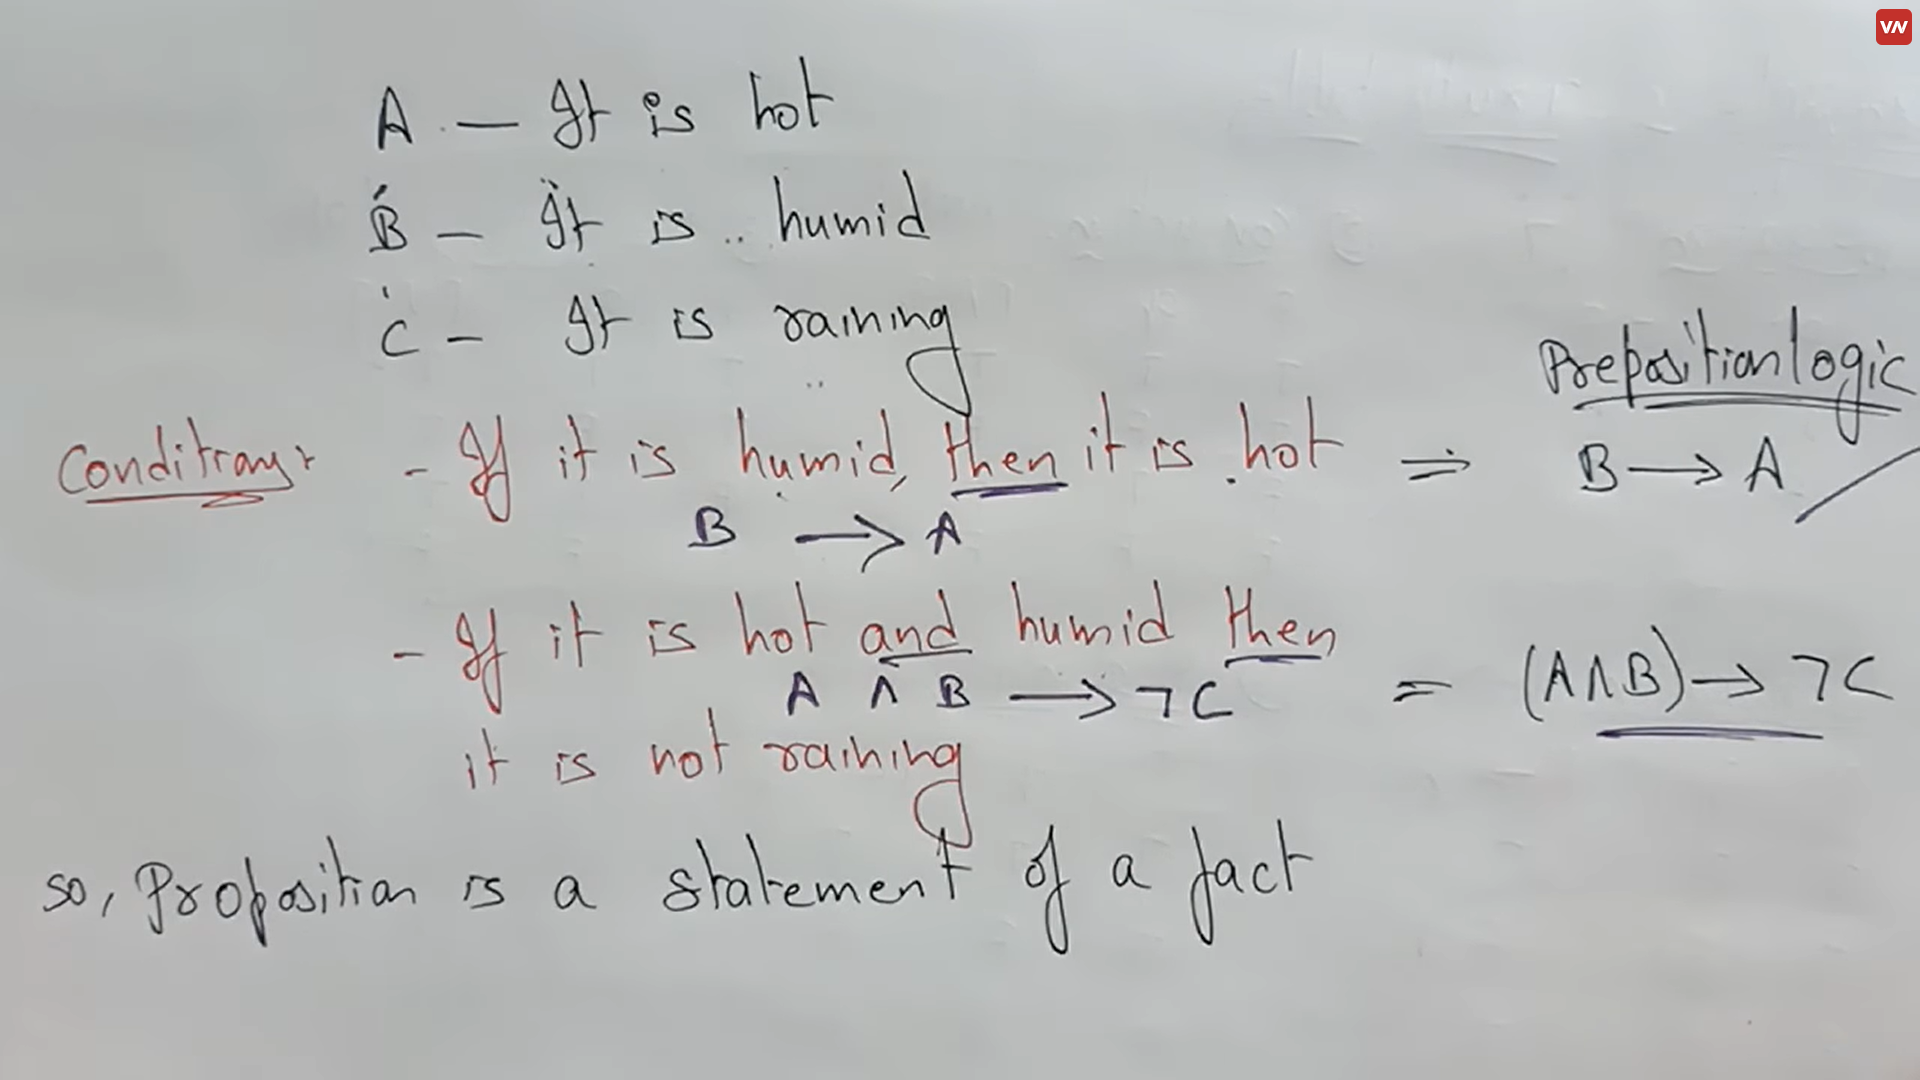 VN
A - It is hot
B - It is humid
C - It is raining
Preposition logic
Conditions - If it is humid, then it is hot ⇒ B → A
B → A
- If it is hot and humid then
A ∧ B → ¬C = (A∧B) → ¬C
it is not raining
so, Proposition is a statement of a fact